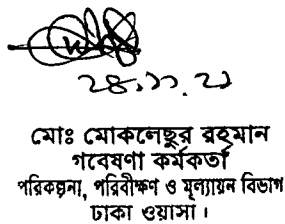 ২৪.১১.২১
মোঃ মোকলেছুর রহমান
গবেষণা কর্মকর্তা
পরিকল্পনা, পরিবীক্ষণ ও মূল্যায়ন বিভাগ
ঢাকা ওয়াসা।